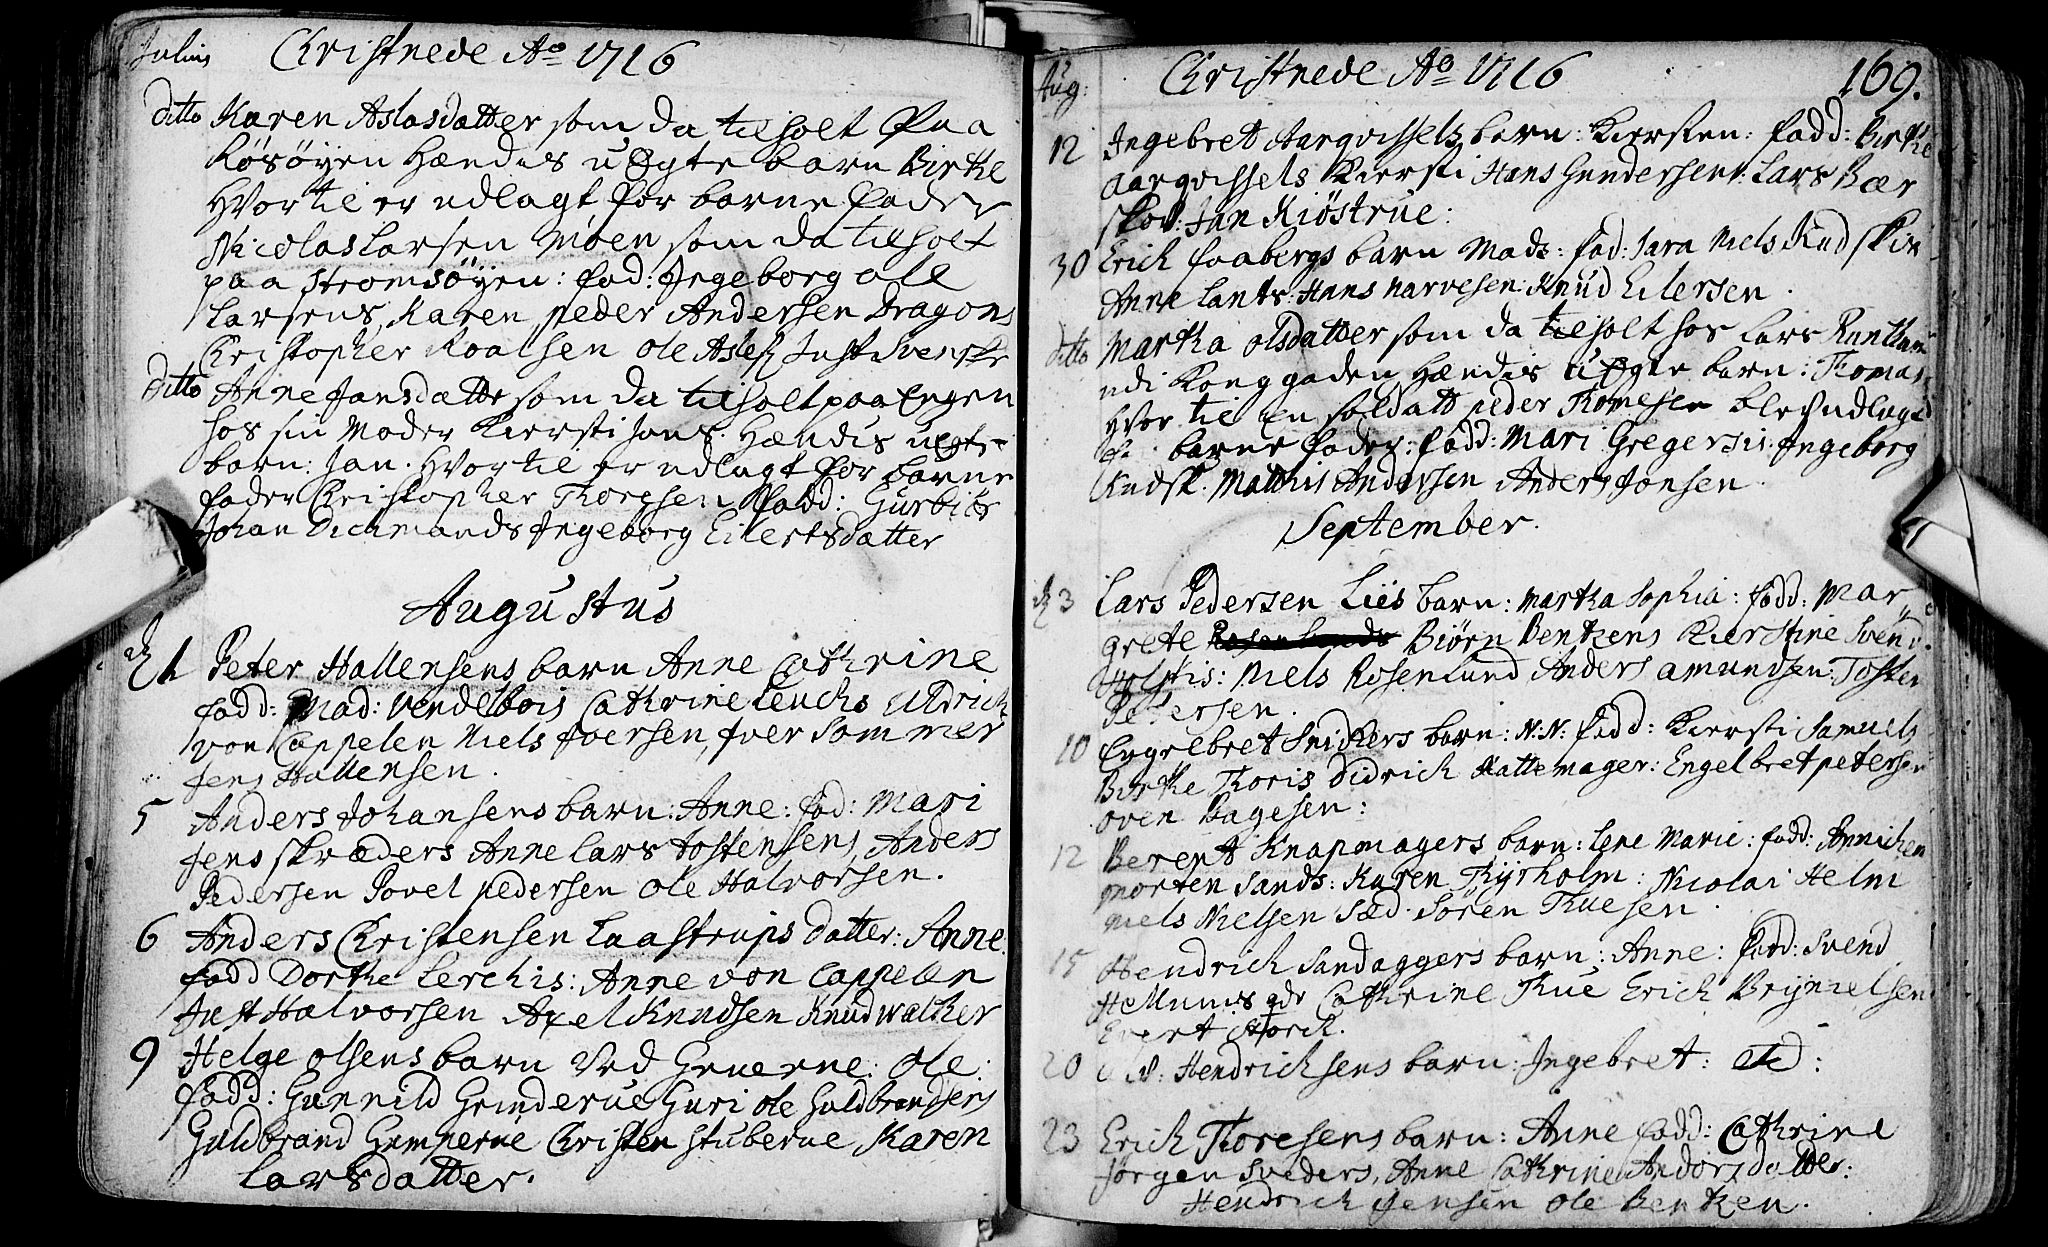 Julius Christnede Ao 1716
ditto Karen Aslasdatter som da tilholt paa
Røsøyen Hændis uEgte barn Birthe
Hvortil er udlagt for barne fader
Nicolas Larsen Moen som da tilholt
paa Stromsøyen: fad: Ingeborg ole
Larsens, Karen peder Andersen Dragons
Christopher Roalsen ole Aslefs Just Svenske
ditto Anne Jansdatter som da tilholt paa Engen
hos sin Moder Kiersti Jans. Hændis uegte
barn: Jan. Hvortil er udlagt for barne
fader Christopher Thoresen fadd: Gurbiør
Johan Dichmands Ingeborg Eilertsdatter
Augustus
1 Peter Hallensens barn Anne Cathrine
fadd: Mad: Vendelbois Cathrine Leuchs Uldrich
von Cappelen Niels Iversen, Iver Sommer
Jens Hallensen.
5 Anders Johansens barn: Anne: fad: Mari
Jens skræders Anne Lars tostensens, Anders
Pedersen Povel pedersen ole Halvorsen.
6 Anders Christensen Laastrups datter: Anne
fadd Dorthe Lerchis: Anne von Cappelen
Just Halvorsen Axel Knudsen Knud walcker
9 Helge olsens barn Ved Gruerne: ole:
fadd: Gunnild Grinderue Guri ole Guldbrandsens
Guldbrand Gumnerue Christen stuberue Karen
Larsdatter.
Aug: Christnede Ao 1716 169.
12 Ingebret Aarqvissels barn: Kiersten: fadd: Birthe
aarqvissels Kiersti Hans Gundersen: Lars Bær
skov: Jan Kiøstrue:
30 Erich faabergs barn Mads: fad: Sara Niels Rudskin
Anne Lants: Hans Narvesen: Knud Eilersen.
ditto Martha olsdatter som da tilholt hos Lars
udi Konggaden Hændis uEgte barn: Thomas
Hvor til en soldatt peder Thomesen blef udlagd
barne fader: fadd: Mari Gregersis: Ingeborg
Rudsk: Matthis Andersen Anders Jonsen.
September.
3 Lars Pedersen Liis barn: Martha Sophia: fadd: Mar
grete Biørn Bentzens Kierstine Svend
Holstis: Niels Rosenlund Anders amundsen: Tosten
Petersen.
10 Engelbret Snickers barn: N:N: fadd: Kiersti Samuels
Birthe Thoris Didrich Hattemager: Engelbret petersen
oven Bagesen:
12 Berent Knapmagers barn: Lene Marie: fadd: Annichen
Morten Sands: Karen Thyrholm: Nicolai Helm
Niels Nielsen Sæd. Søren Thuesen.
15 Hendrich Sandaggers barn: Anne: fadd: Svend
Hemunis Cathrine Thue Erich Brynielsen
Evert Storch.
20 Hendrichsens barn: Ingebret:
23 Erich Thoresens barn: Anne fadd: Cathrine
Jørgen Sveders, Anne Cathrine Andersdatter:
Hendrich Jensen ole Bentzen.